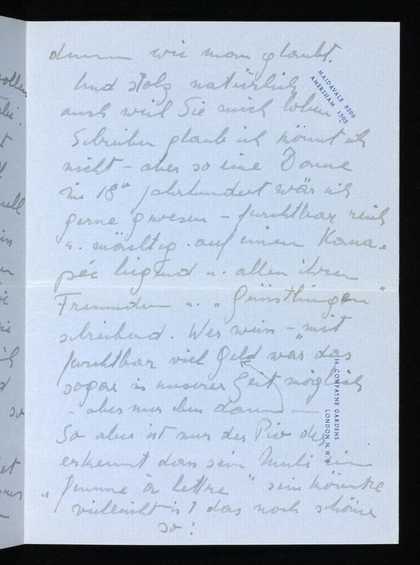 dumm wie man glaubt.
Und stolz natürlich
auch weil Sie mich loben.
Schreiben glaub ich könnt ich
nicht – aber so eine Dame
im 18ᵗ Jahrhundert wär ich
gerne gewesen – furchtbar reich
u. mächtig. auf einem Kana-
péc liegend u. allen ihren
Freunden u. "Günstlingen"
schreibend. Wer weiss – mit
furchtbar viel Geld wär das
sogar in unserer Zeit möglich
– aber nur dann –
So aber ist nur der
erkennt dass sein Muli ein
"femme à lettre" sein könnte
vielleicht ist das noch schöner
so!
MAIDAVALE 8206
AMERSHAM 1505
COMPAYNE GARDENS
LONDON, N.W.6